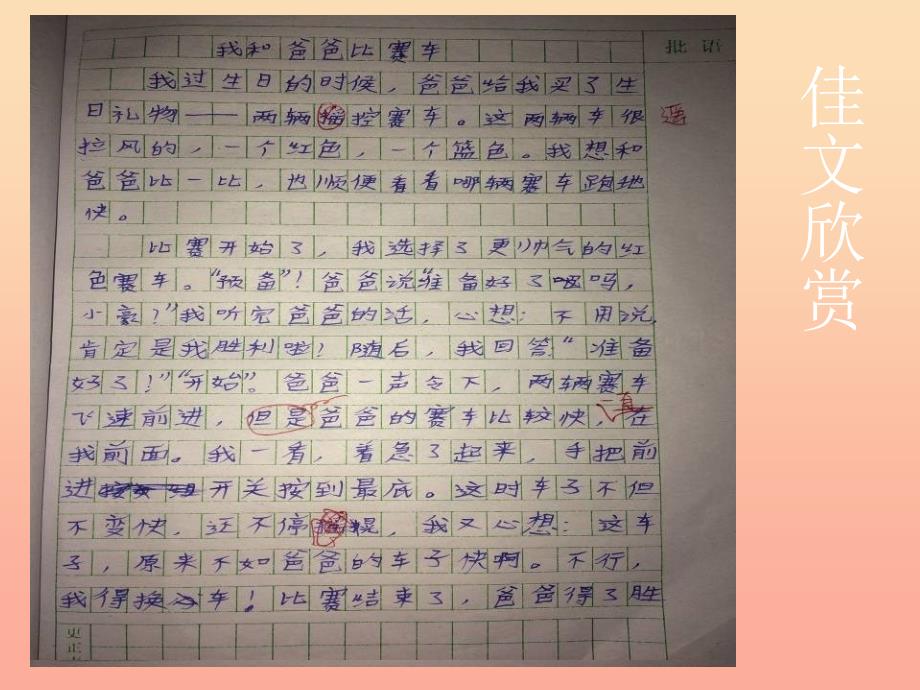 我和爸爸比赛车
批语
我过生日的时候，爸爸给我买了生
日礼物——两辆控赛车。这两辆车很
遥
拉风的，一个红色，一个篮色。我想和
爸爸比一比，也顺便看看哪辆赛车跑地
快。
比赛开始了，我选择了更帅气的红
色赛车。“预备”！爸爸说“准备好了吗，
小豪？”我听完爸爸的活，心想：不用说，
肯定是我胜利啦！随后，我回答“准备
好了！”“开始”。爸爸一声令下，两辆赛车
飞速前进，但是爸爸的赛车比较快，一直在
我前面。我一看，着急了起来，手把前
进开关按到最底。这时车子不但
不变快，还不停，我又心想：这车
子，原来不如爸爸的车子快啊。不行，
我得换车！比赛结束了，爸爸得了胜
更正
佳文欣赏